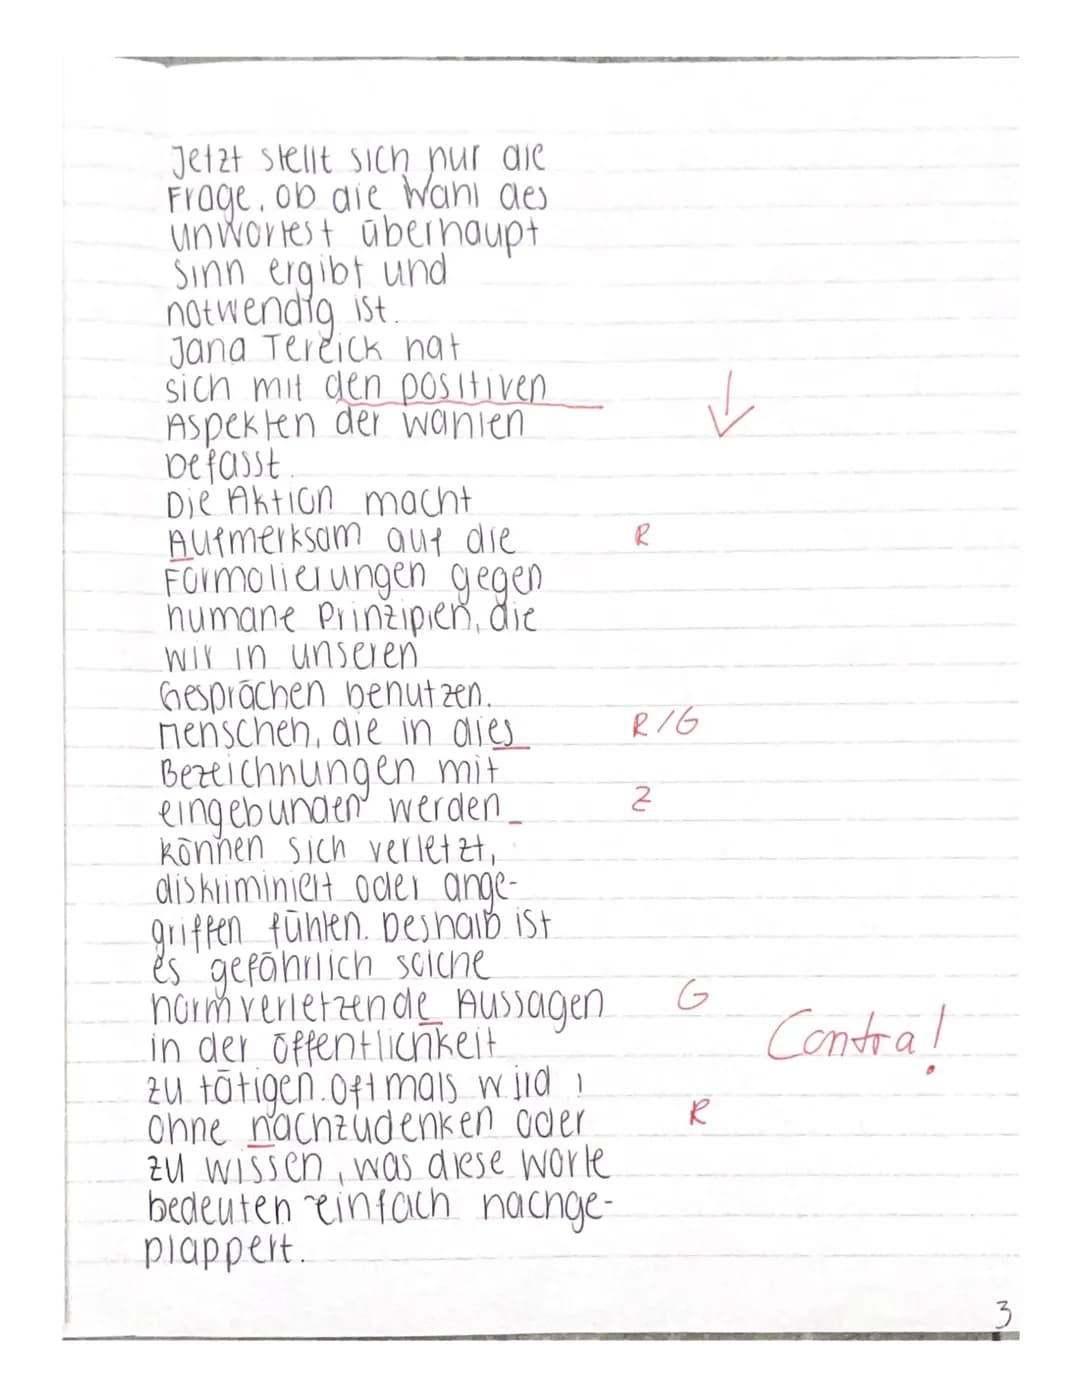 Jetzt stellt sich nur die
Frage, ob die Wahl des
unwortest überhaupt
Sinn ergibt und
notwendig ist.
Jana Tereick hat
sich mit den positiven
↓
Aspekten der wahlen
befasst.
Die Aktion macht
Aufmerksam auf die R
Formolierungen gegen
humane Prinzipien, die
wir in unseren
Gesprächen benutzen.
Menschen, die in dies R/G
Bezeichnungen mit
eingebunden werden Z
können sich verletzt,
diskriminiert oder ange-
griffen fühlen. Deshalb ist
es gefährlich solche
normverletzende Aussagen G
in der öffentlichkeit Contra!
zu tätigen. Oftmals wird,
ohne nachzudenken oder R
zu wissen, was diese worte
bedeuten einfach nachge-
plappert.
3